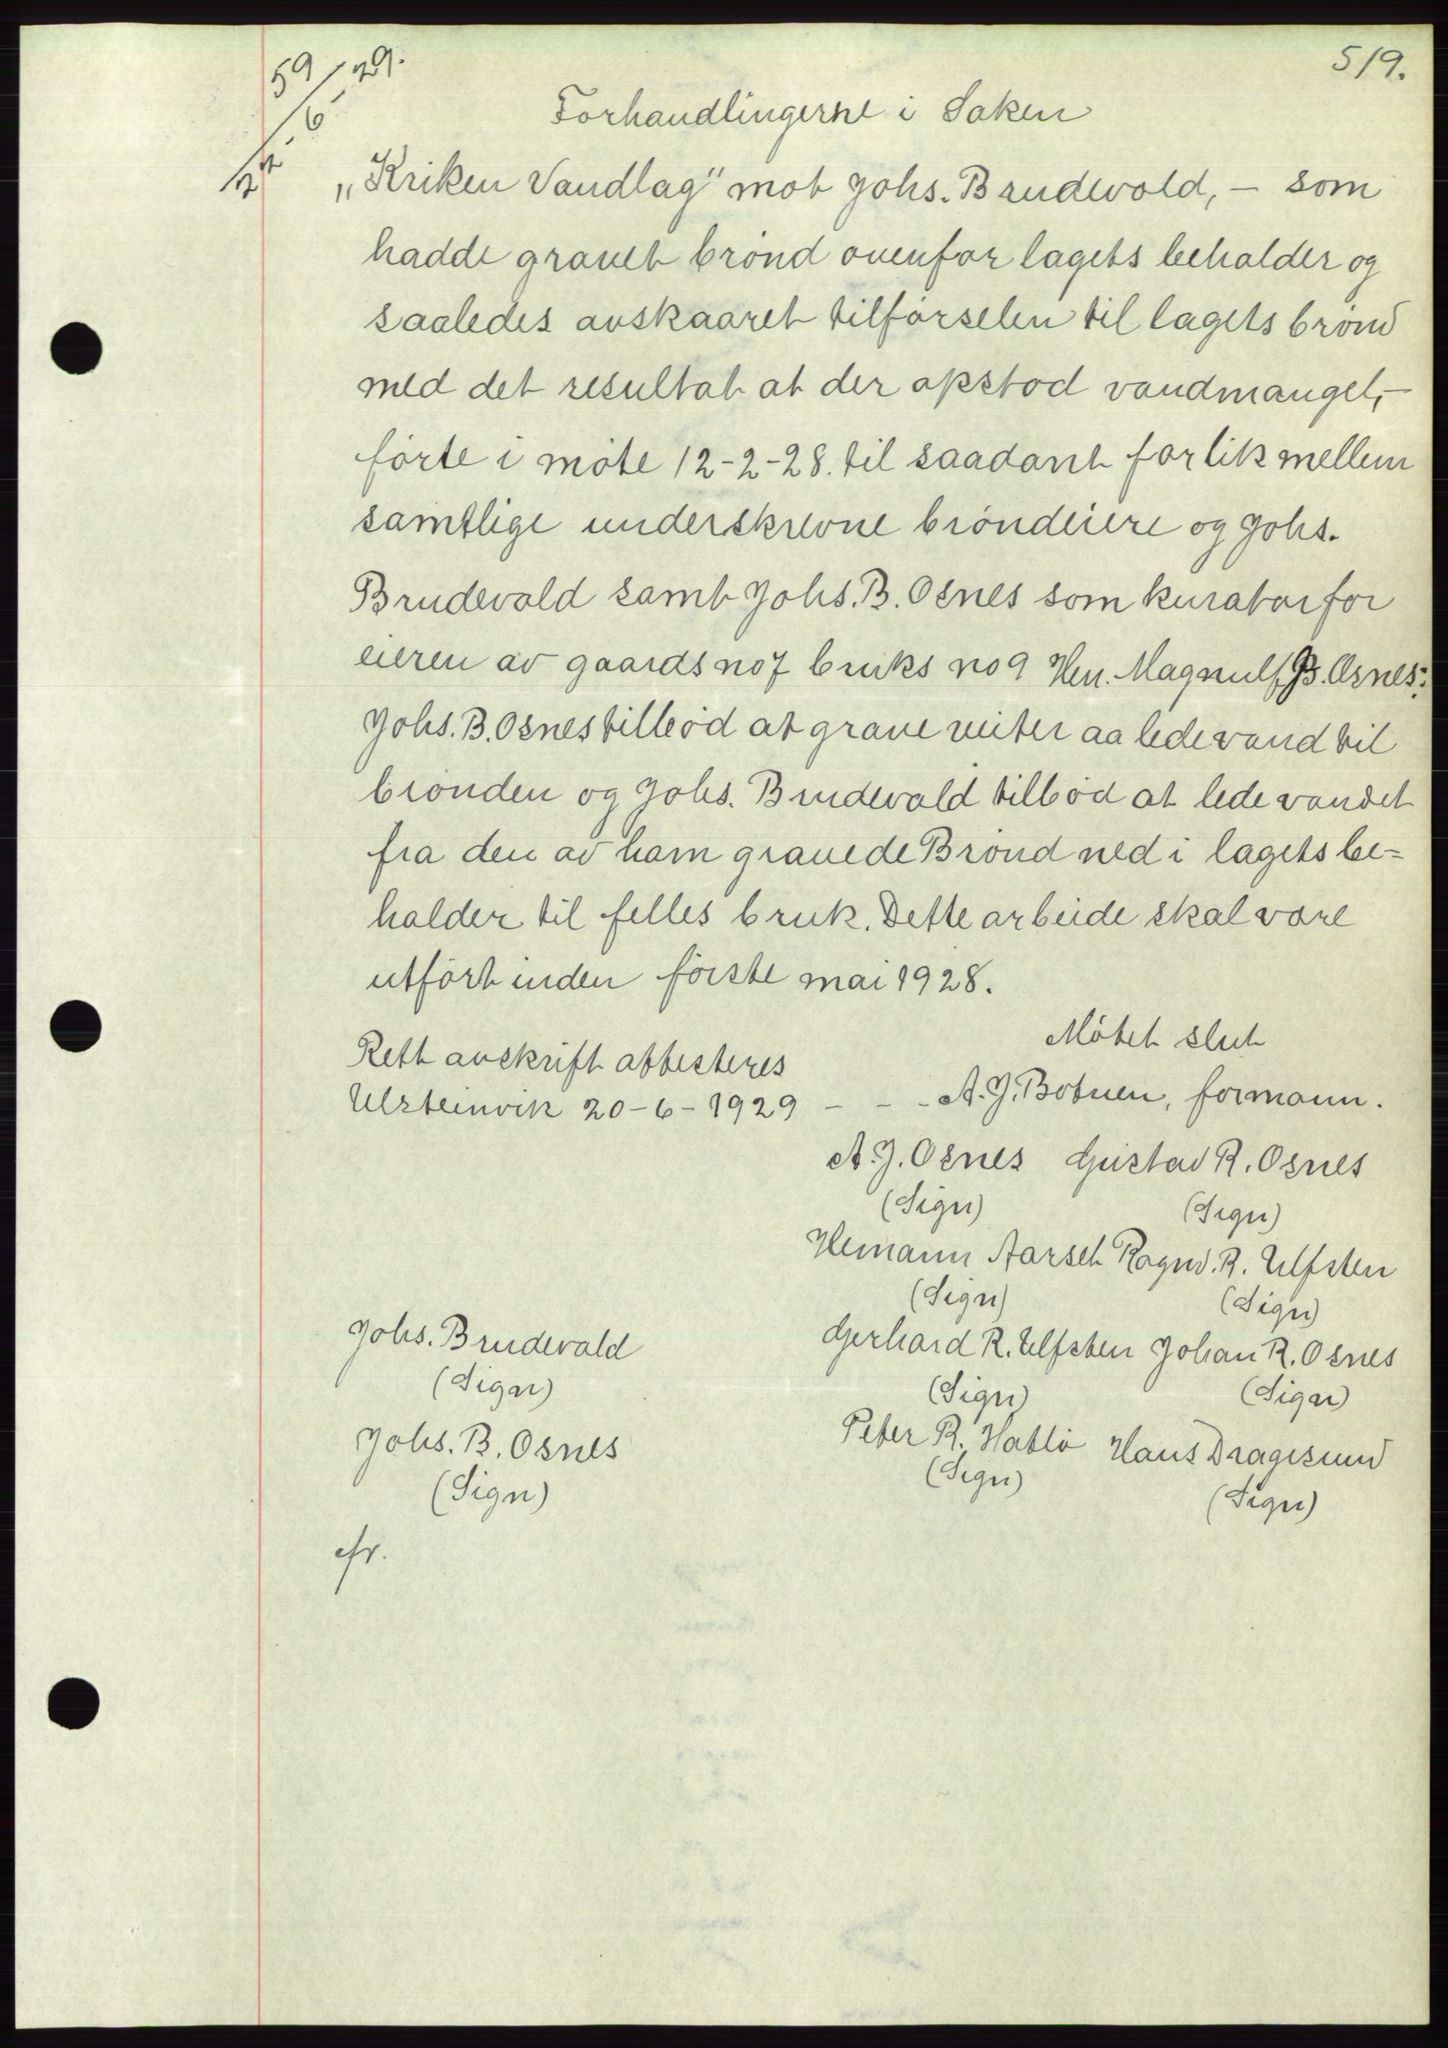 519.
59
22/6-29.
Forhandlingerne i Saken
„Kriken Vandlag" mot Johs. Brudevold, – som
hadde gravet brönd ovenfor lagets beholder og
saaledes avskaaret tilförselen til lagets brönd
med det resultat at der opstod vandmangel,–
förte i möte 12-2-28. til saadant forlik mellem
samtlige underskrevne bröndeiere og Johs.
Brudevold samt Johs. B. Osnes som kurator for
eieren av gaards no 7 bruks no 9 Hrr. Magnulf B. Osnes:
Johs. B. Osnes tilböd at grave veiter aa lede vand til
brönden og Johs. Brudevold tilböd at lede vandet
fra den av ham gravede Brönd ned i lagets be=
holder til felles bruk. Dette arbeide skal være
utfört inden förste mai 1928.
Mötet slut
Rett avskrift attesteres
Ulsteinvik 20-6-1929 - - - A. J. Botnen, formann.
A. J. Osnes Gustav R. Osnes
(Sign) (Sign)
Hermann Aarseth Ragnv. R. Ulfsten
(Sign) (Sign)
Johs. Brudevold Gerhard R. Ulfsten Johan R. Osnes
(Sign) (Sign) (Sign)
Johs. B. Osnes Peter R. Hatlö Hans Dragesund
(Sign) (Sign) (Sign)
cfr.